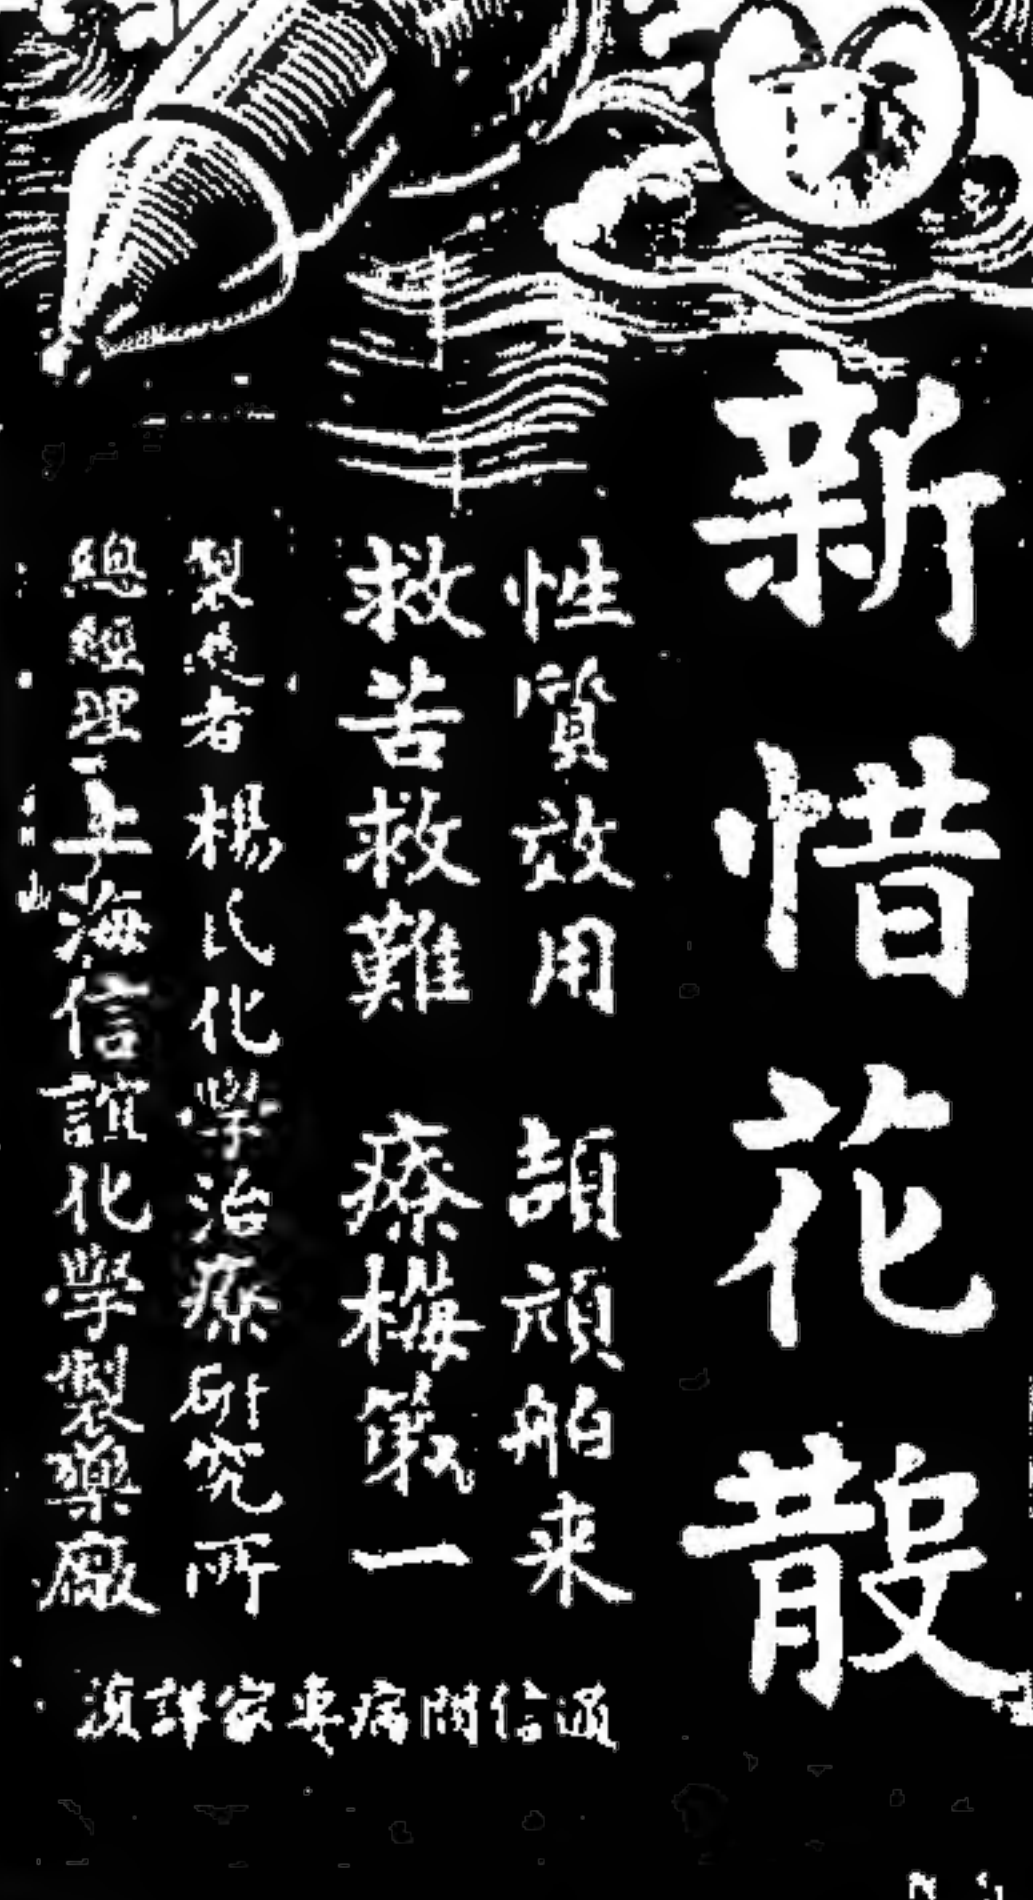 新惜花散
性質效用 頡頏舶来
救苦救難 療梅第一
製造者 楊氏化學治療研究所
總經理 上海信誼化學製藥廠
通信問病專家詳復